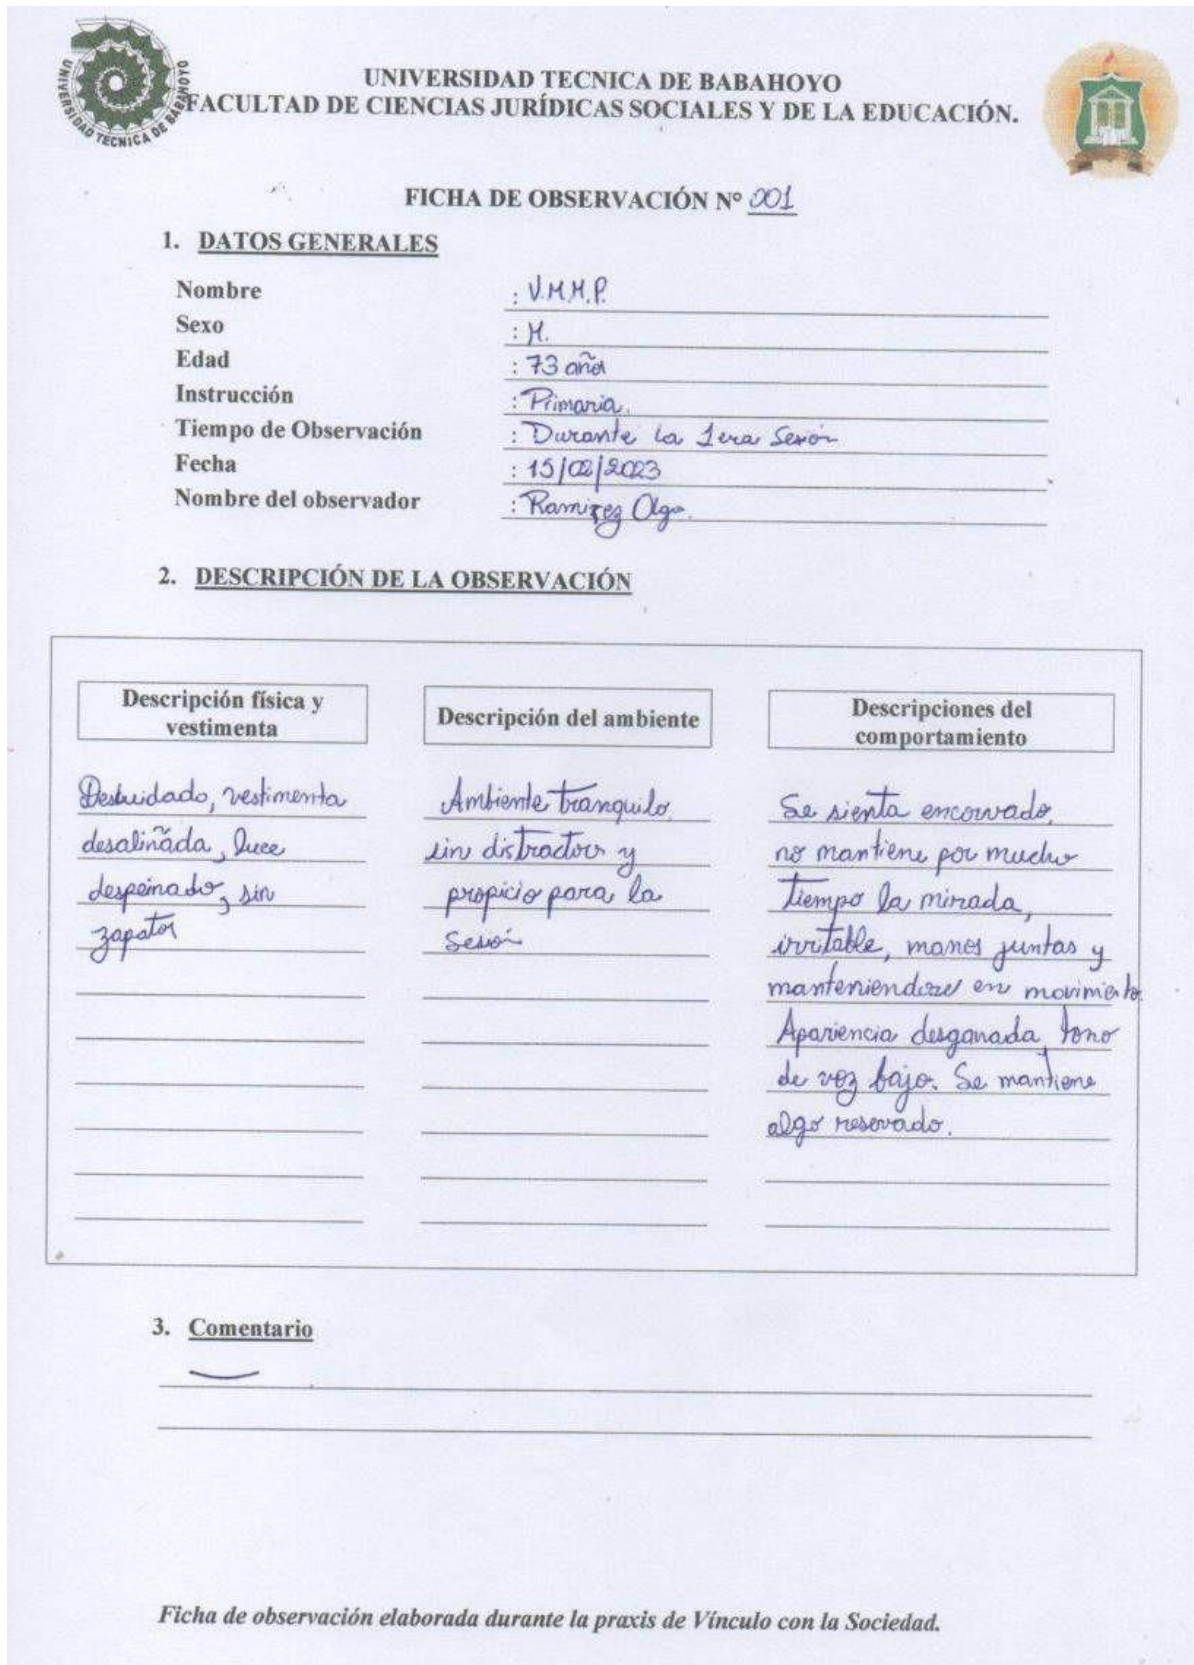 UNIVERSIDAD TECNICA DE BABAHOYO
UNIVERSIDAD TECNICA DE BABAHOYO
FACULTAD DE CIENCIAS JURÍDICAS SOCIALES Y DE LA EDUCACIÓN.
FICHA DE OBSERVACIÓN Nº 001
1. DATOS GENERALES
Nombre : V.M.M.P.
Sexo : M.
Edad : 73 años
Instrucción : Primaria.
Tiempo de Observación : Durante la 1era Sesión
Fecha : 15/02/2023
Nombre del observador : Ramirez Olga.
2. DESCRIPCIÓN DE LA OBSERVACIÓN
Descripción física y
vestimenta
Descuidado, vestimenta
desaliñada, luce
despeinado, sin
zapatos
Descripción del ambiente
Ambiente tranquilo,
sin distractores y
propicio para la
sesión
Descripciones del
comportamiento
Se sienta encorvado,
no mantiene por mucho
tiempo la mirada,
irritable, manos juntas y
manteniendose en movimiento.
Apariencia desganada, tono
de voz bajo. Se mantiene
algo reservado.
3. Comentario
Ficha de observación elaborada durante la praxis de Vínculo con la Sociedad.